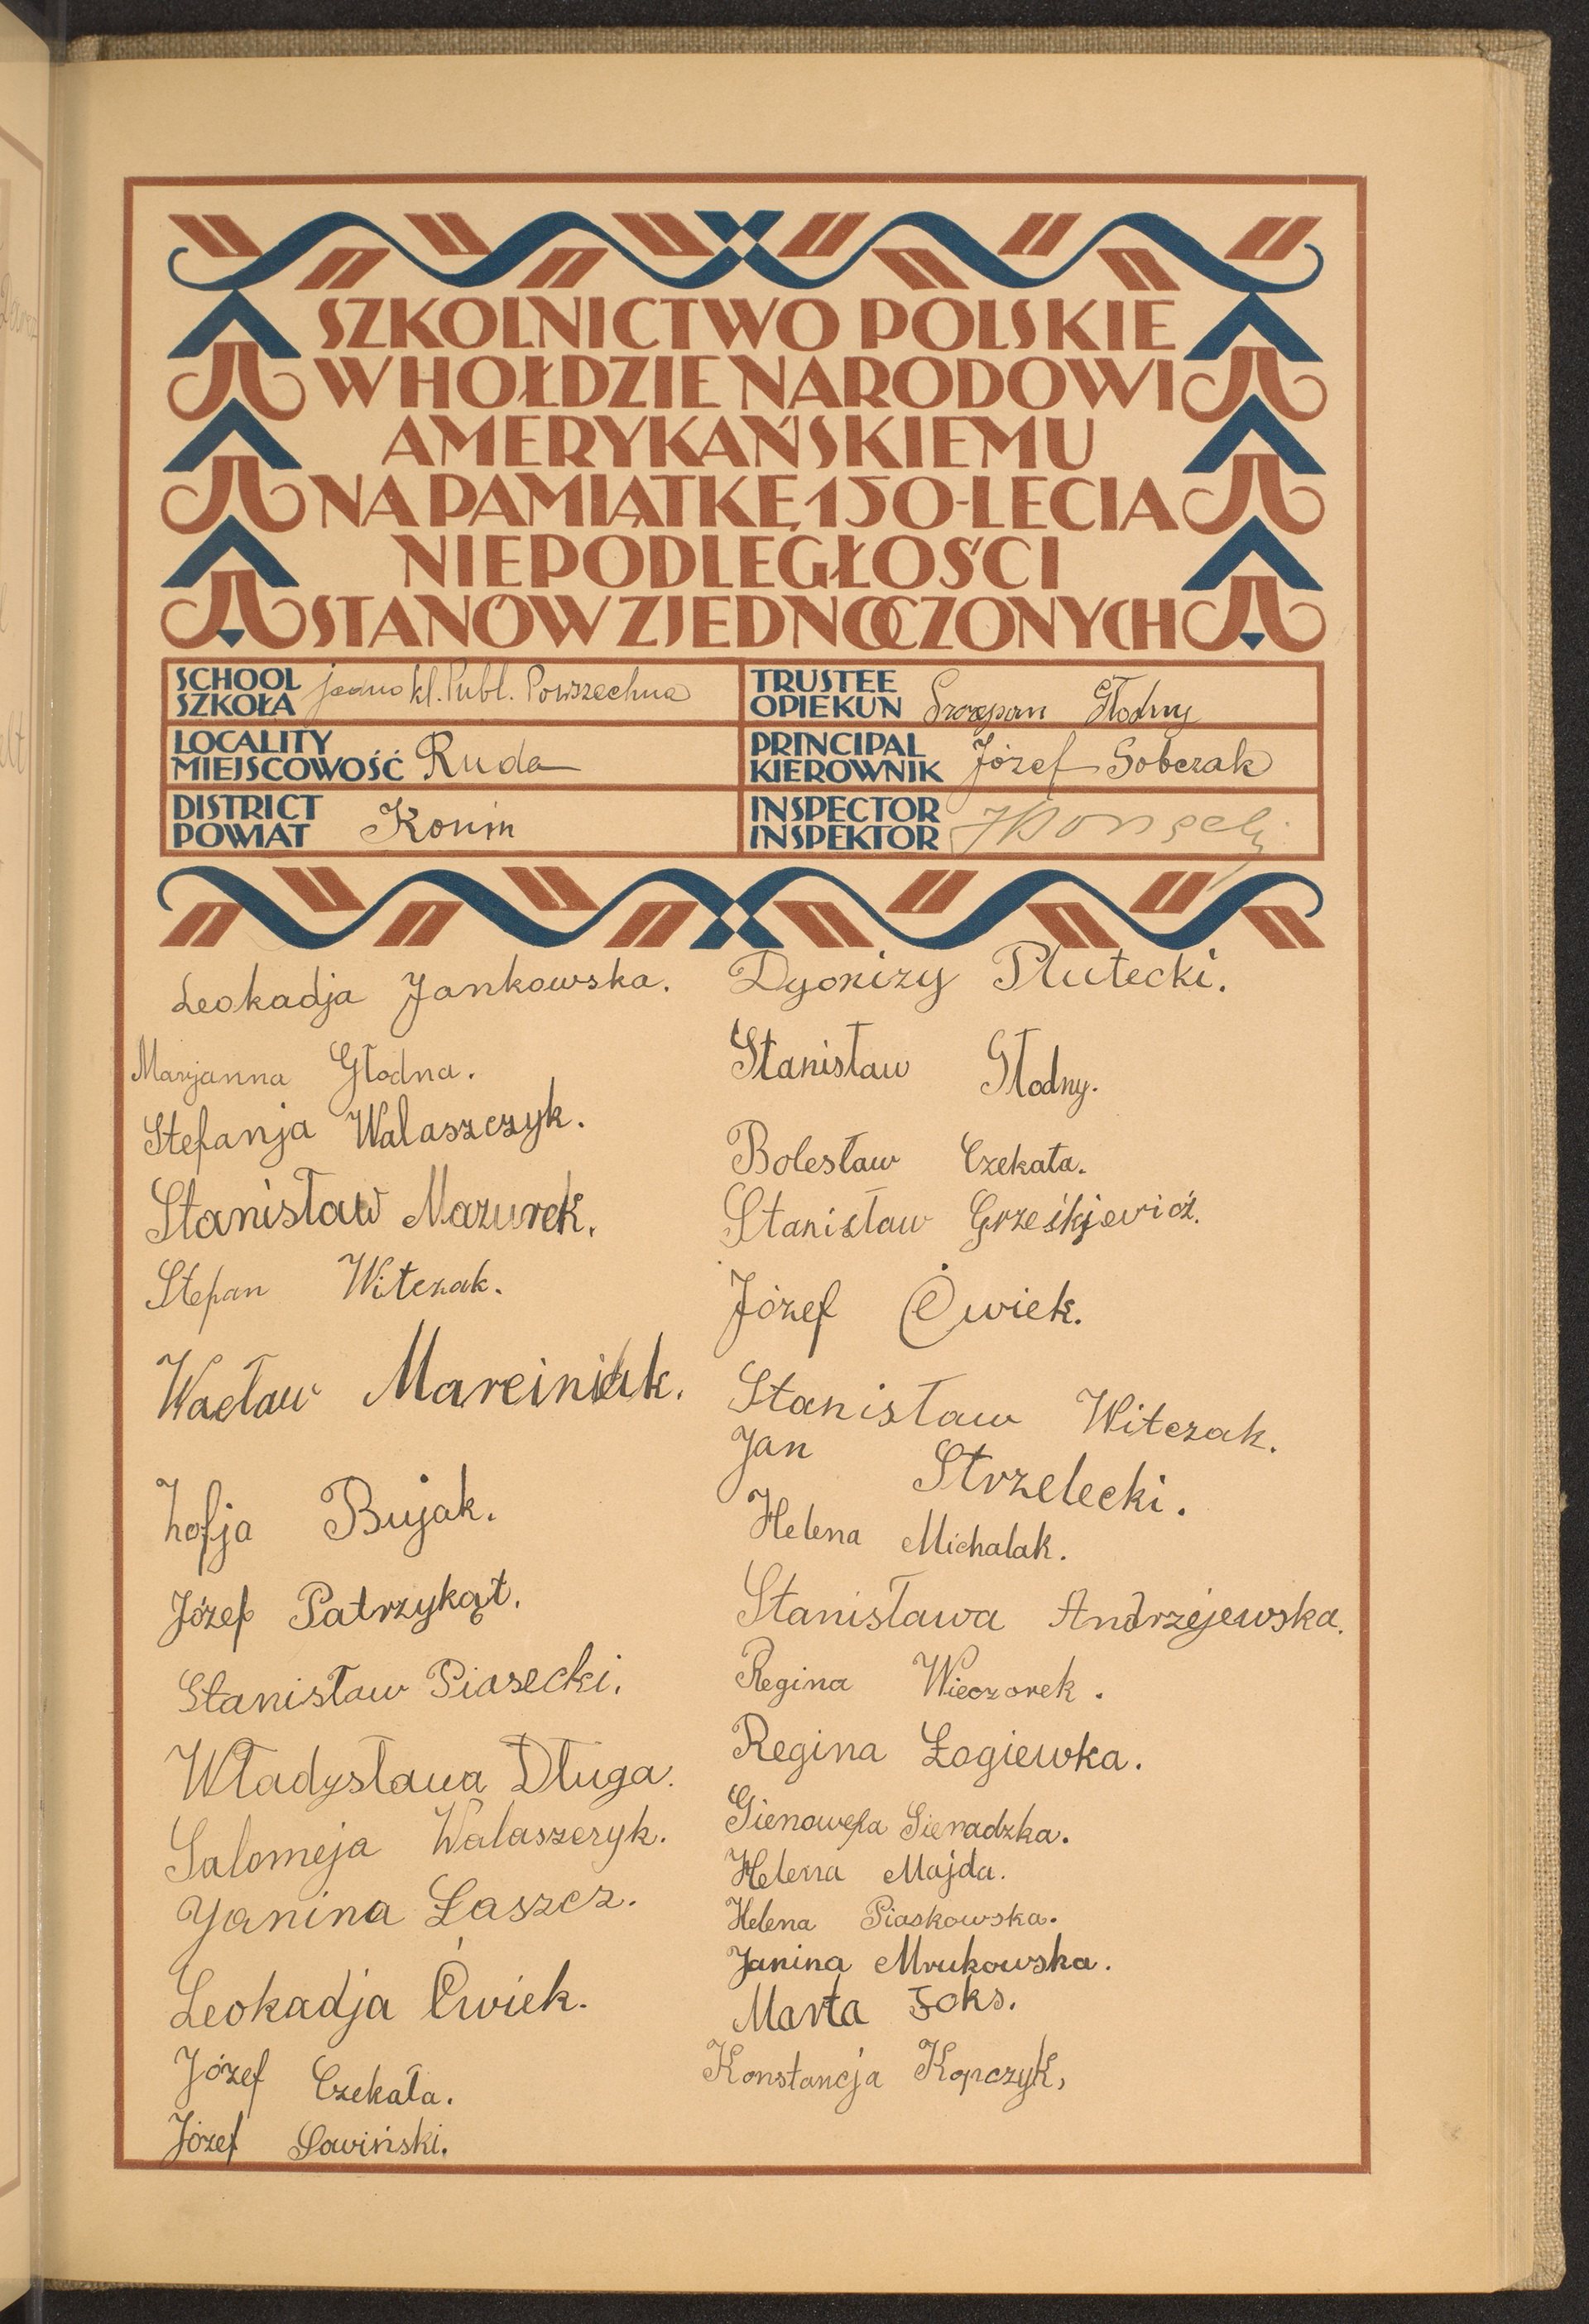 SZKOLNICTWO POLSKIE
W HOŁDZIE NARODOWI
AMERYKAŃSKIEMU
NA PAMIĄTKĘ 150-LECIA
NIEPODLEGŁOŚCI
STANÓW ZJEDNOCZONYCH
SCHOOL
SZKOŁA jedno kl. Publ. Powszechna
TRUSTEE
OPIEKUN Szczepan Głodny
LOCALITY
MIEJSCOWOŚĆ Ruda
PRINCIPAL
KIEROWNIK Józef Sobczak
DISTRICT
POWIAT Konin
INSPECTOR
INSPEKTOR
Leokadja Jankowska.
Marjanna Głodna.
Stefanja Walaszczyk.
Stanisław Mazurek.
Stepan Witczak.
Wacław Marciniak.
Zofja Bujak.
Józef Patrzykąt.
Stanisław Piasecki.
Władysława Długa.
Salomeja Walaszczyk.
Janina Łaszcz.
Leokadja Ćwiek.
Józef Czekała.
Józef Sawiński.
Dyonizy Plutecki.
Stanisław Głodny.
Bolesław Czekała.
Stanisław Grześkjewicż.
Józef Ćwiek.
Stanisław Witczak.
Jan Strzelecki.
Helena Michalak.
Stanisława Andrzejewska.
Regina Wieczorek.
Regina Łogiewka.
Gienowefa Sieradzka.
Helena Majda.
Helena Piaskowska.
Janina Mrukowska.
Marta Foks.
Konstancja Kopczyk,